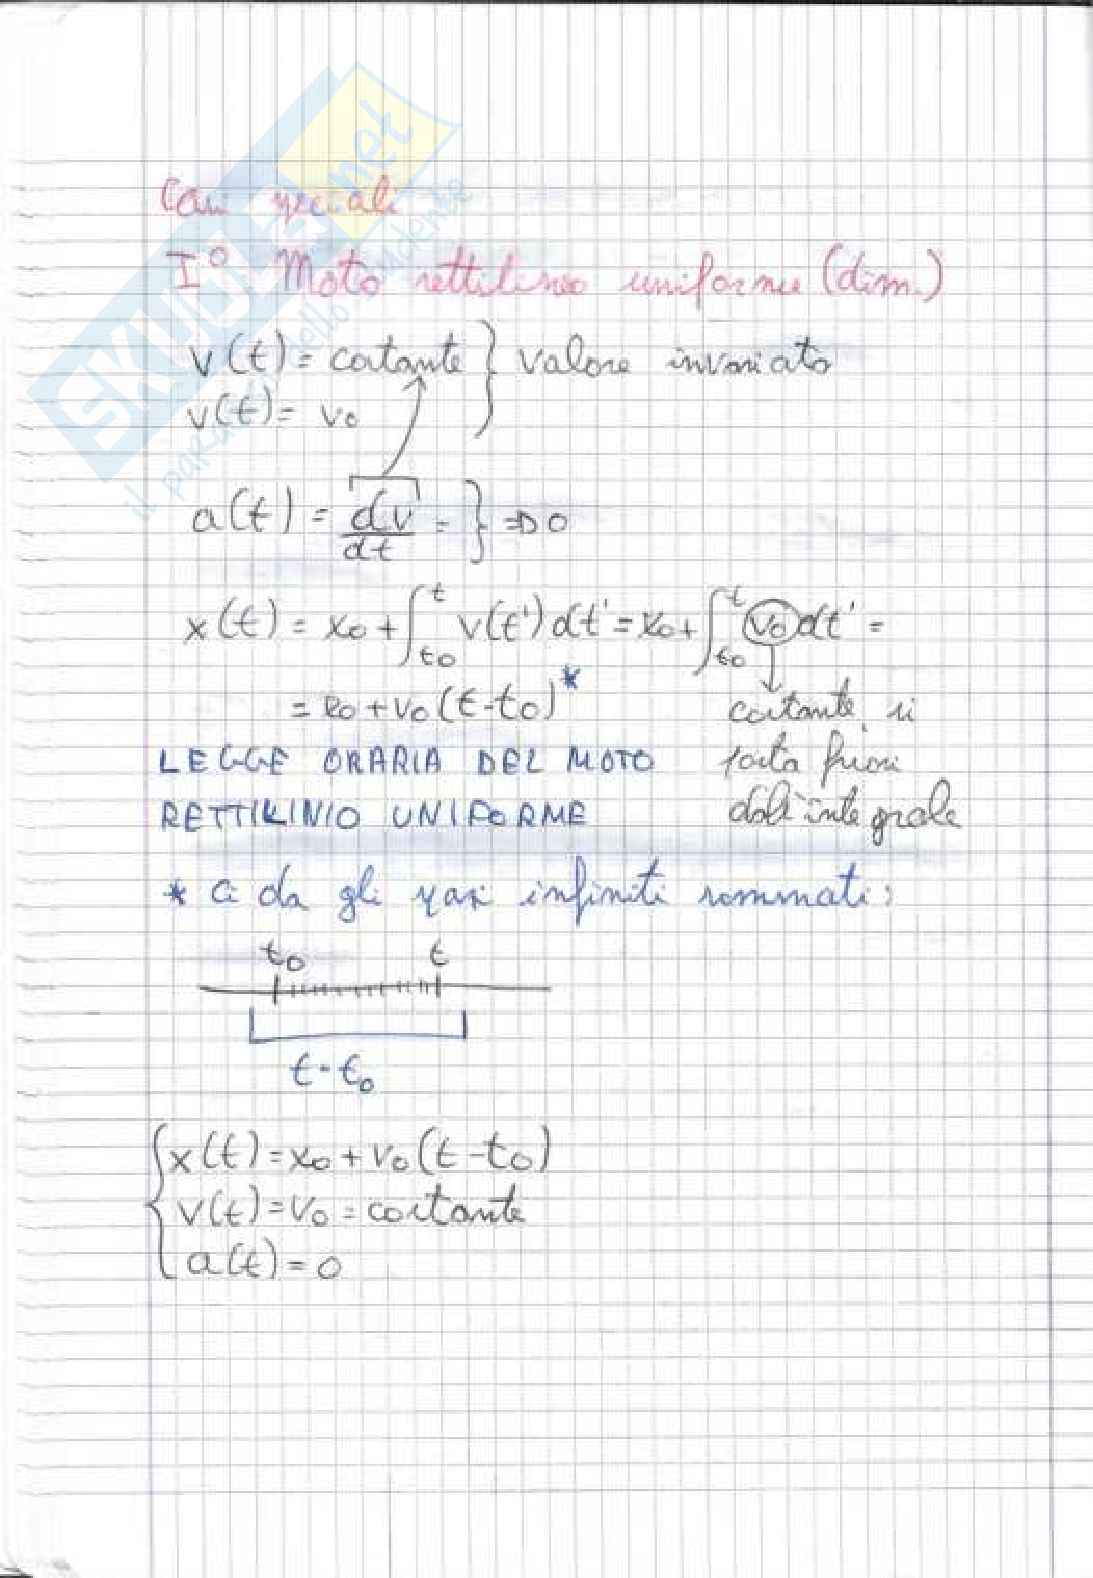 Casi speciali
I° Moto rettilineo uniforme (dim.)
v(t) = costante } valore invariato
v(t) = v₀
a(t) = dv/dt = } => 0
x(t) = x₀ + ∫ₜ₀ᵗ v(t') dt' = x₀ + ∫ₜ₀ᵗ v₀ dt' =
= x₀ + v₀ (t - t₀)*
costante, si
porta fuori
dall'integrale
LEGGE ORARIA DEL MOTO
RETTILINIO UNIFORME
* ci da gli spazi infiniti sommati:
t₀ t
t - t₀
x(t) = x₀ + v₀ (t - t₀)
v(t) = v₀ = costante
a(t) = 0
SKUOLA.net
il paradiso dello studente